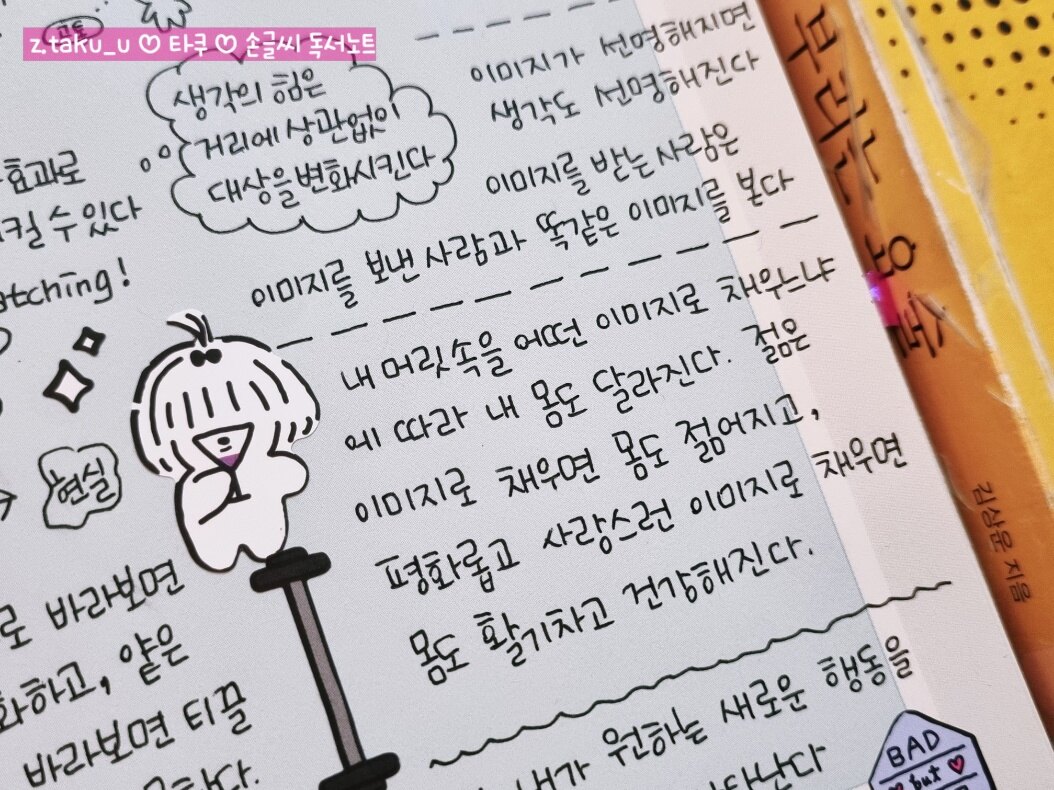 z.taku_u ♡ 타쿠 ♡ 손글씨 독서노트
생각의 힘은
거리에 상관없이
대상을 변화시킨다
이미지가 선명해지면
생각도 선명해진다
이미지를 받는 사람은
이미지를 보낸 사람과 똑같은 이미지를 본다
효과로
킬 수 있다
atching!
현실
내 머릿속을 어떤 이미지로 채우느냐
에 따라 내 몸도 달라진다. 젊은
이미지로 채우면 몸도 젊어지고,
평화롭고 사랑스런 이미지로 채우면
몸도 활기차고 건강해진다.
로 바라보면
화하고, 얕은
바라보면 티끌
내가 원하는 새로운 행동을
타난다
BAD
but
김상운 지음